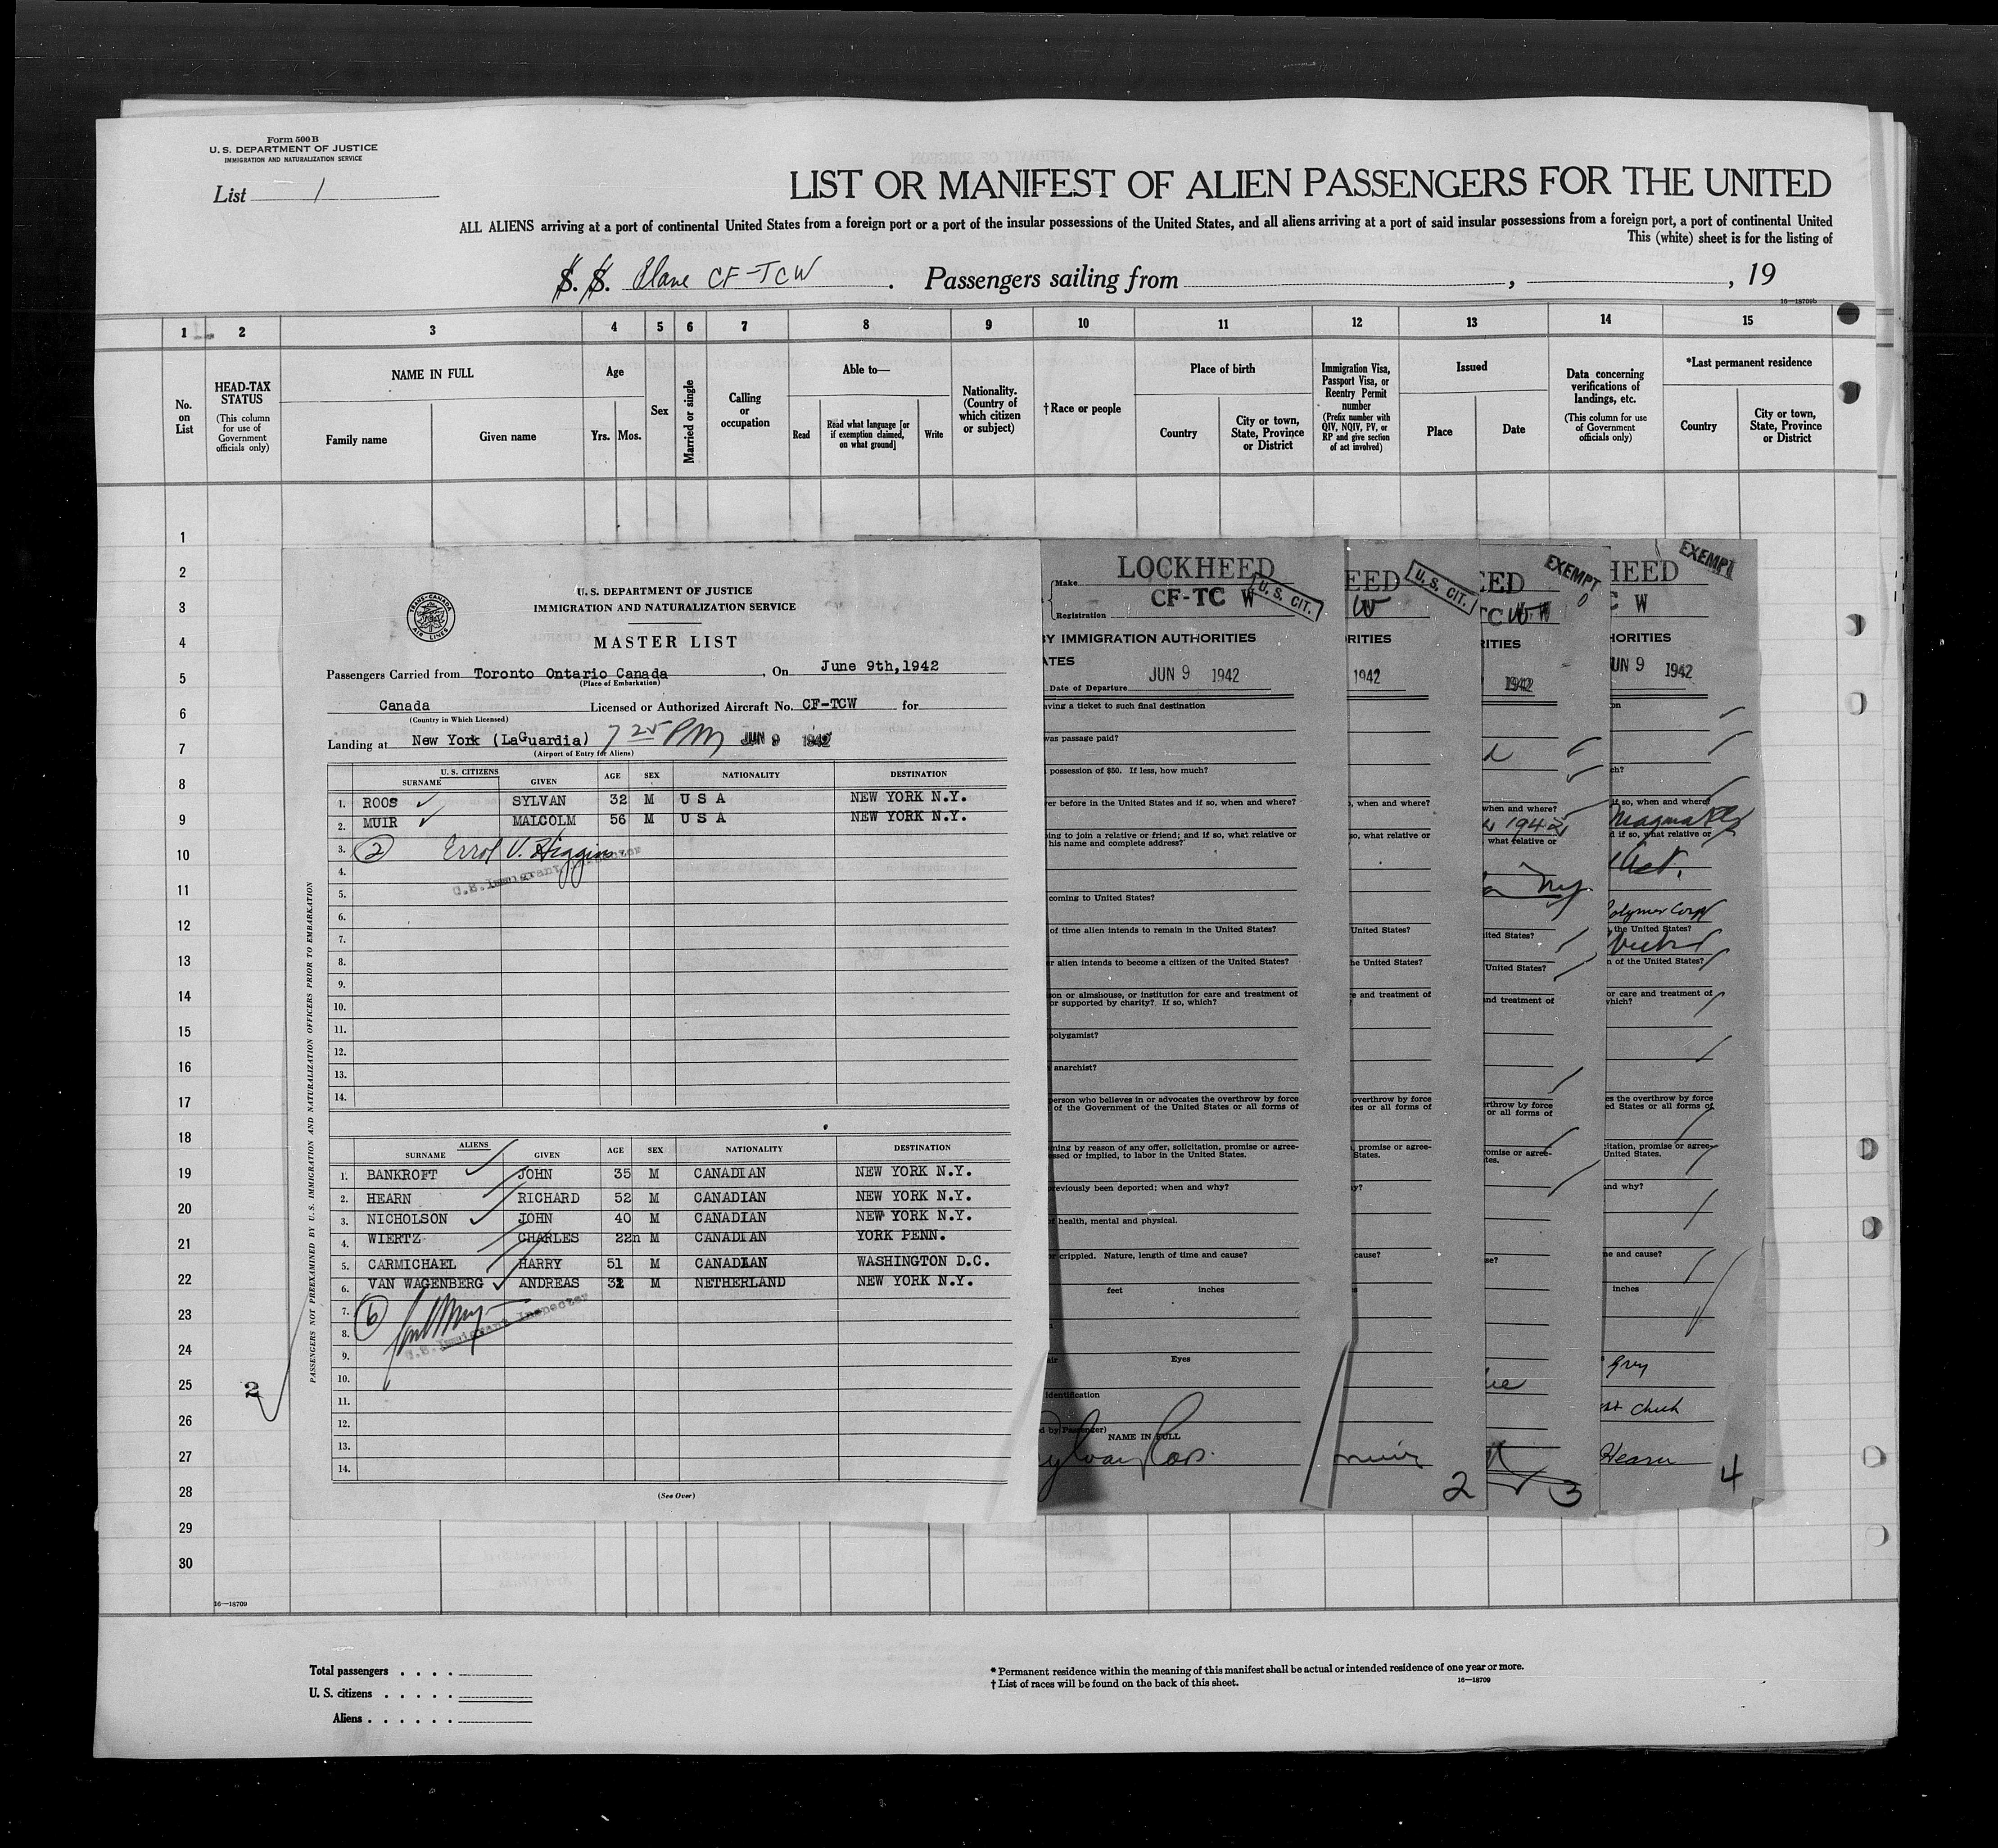 Form 500 B
U. S. DEPARTMENT OF JUSTICE
IMMIGRATION AND NATURALIZATION SERVICE
List 1
LIST OR MANIFEST OF ALIEN PASSENGERS FOR THE UNITED
ALL ALIENS arriving at a port of continental United States from a foreign port or a port of the insular possessions of the United States, and all aliens arriving at a port of said insular possessions from a foreign port, a port of continental United
This (white) sheet is for the listing of
S. S. Plane CF-TCW . Passengers sailing from , , 19
16—18709b
1 2 3 4 5 6 7 8 9 10 11 12 13 14 15
No. on List
HEAD-TAX STATUS
(This column for use of Government officials only)
NAME IN FULL
Family name
Given name
Age
Yrs.
Mos.
Sex
Married or single
Calling or occupation
Able to—
Read
Read what language [or if exemption claimed, on what ground]
Write
Nationality. (Country of which citizen or subject)
† Race or people
Place of birth
Country
City or town, State, Province or District
Immigration Visa, Passport Visa, or Reentry Permit number
(Prefix number with QIV, NQIV, PV, or RP and give section of act involved)
Issued
Place
Date
Data concerning verifications of landings, etc.
(This column for use of Government officials only)
*Last permanent residence
Country
City or town, State, Province or District
1
2
3
4
5
6
7
8
9
10
11
12
13
14
15
16
17
18
19
20
21
22
23
24
25
26
27
28
29
30
2
16—18709
TRANS-CANADA AIR LINES
U. S. DEPARTMENT OF JUSTICE
IMMIGRATION AND NATURALIZATION SERVICE
MASTER LIST
Passengers Carried from Toronto Ontario Canada , On June 9th,1942
(Place of Embarkation)
Canada Licensed or Authorized Aircraft No. CF-TCW for
(Country in Which Licensed)
Landing at New York (LaGuardia) 7 25 PM JUN 9 1942
(Airport of Entry for Aliens)
U. S. CITIZENS
SURNAME GIVEN AGE SEX NATIONALITY DESTINATION
1. ROOS SYLVAN 32 M U S A NEW YORK N.Y.
2. MUIR MALCOLM 56 M U S A NEW YORK N.Y.
3. 2 Errol V. Higgins
4. U.S. Immigrant Inspector
5.
6.
7.
8.
9.
10.
11.
12.
13.
14.
ALIENS
SURNAME GIVEN AGE SEX NATIONALITY DESTINATION
1. BANKROFT JOHN 35 M CANADIAN NEW YORK N.Y.
2. HEARN RICHARD 52 M CANADIAN NEW YORK N.Y.
3. NICHOLSON JOHN 40 M CANADIAN NEW YORK N.Y.
4. WIERTZ CHARLES 22n M CANADIAN YORK PENN.
5. CARMICHAEL HARRY 51 M CANADIAN WASHINGTON D.C.
6. VAN WAGENBERG ANDREAS 32 M NETHERLAND NEW YORK N.Y.
7. 6
8. U.S. Immigrant Inspector
9.
10.
11.
12.
13.
14.
(See Over)
PASSENGERS NOT PREEXAMINED BY U. S. IMMIGRATION AND NATURALIZATION OFFICERS PRIOR TO EMBARKATION
Make LOCKHEED
U. S. CIT.
Registration CF-TC W
BY IMMIGRATION AUTHORITIES
ATES
JUN 9 1942
Date of Departure
aving a ticket to such final destination
was passage paid?
possession of $50. If less, how much?
er before in the United States and if so, when and where?
ing to join a relative or friend; and if so, what relative or
his name and complete address?
coming to United States?
of time alien intends to remain in the United States?
r alien intends to become a citizen of the United States?
on or almshouse, or institution for care and treatment of
or supported by charity? If so, which?
polygamist?
anarchist?
person who believes in or advocates the overthrow by force
of the Government of the United States or all forms of
ming by reason of any offer, solicitation, promise or agree-
ssed or implied, to labor in the United States.
reviously been deported; when and why?
f health, mental and physical.
r crippled. Nature, length of time and cause?
feet inches
air Eyes
identification
d by Passenger)
NAME IN FULL
ylvan Roos.
EED
U. S. CIT.
W
RITIES
1942
, when and where?
so, what relative or
United States?
he United States?
e and treatment of
overthrow by force
tes or all forms of
promise or agree-
States.
y?
cause?
muir
2
EED
EXEMPT
TC W W
RITIES
1942
when and where?
1942
what relative or
ny.
ited States?
United States?
nd treatment of
rthrow by force
or all forms of
romise or agree-
tes.
se?
ue
3
HEED
EXEMPT
C W
HORITIES
UN 9 1942
on
ch?
if so, when and where?
d if so, what relative or
Polymer Corp
the United States?
n of the United States?
or care and treatment of
which?
es the overthrow by force
ed States or all forms of
citation, promise or agree-
United States.
nd why?
e and cause?
inches
Grey
Cheek
Hearn
4
Total passengers . . . .
U. S. citizens . . . . .
Aliens . . . . . .
* Permanent residence within the meaning of this manifest shall be actual or intended residence of one year or more.
† List of races will be found on the back of this sheet.
16—18709